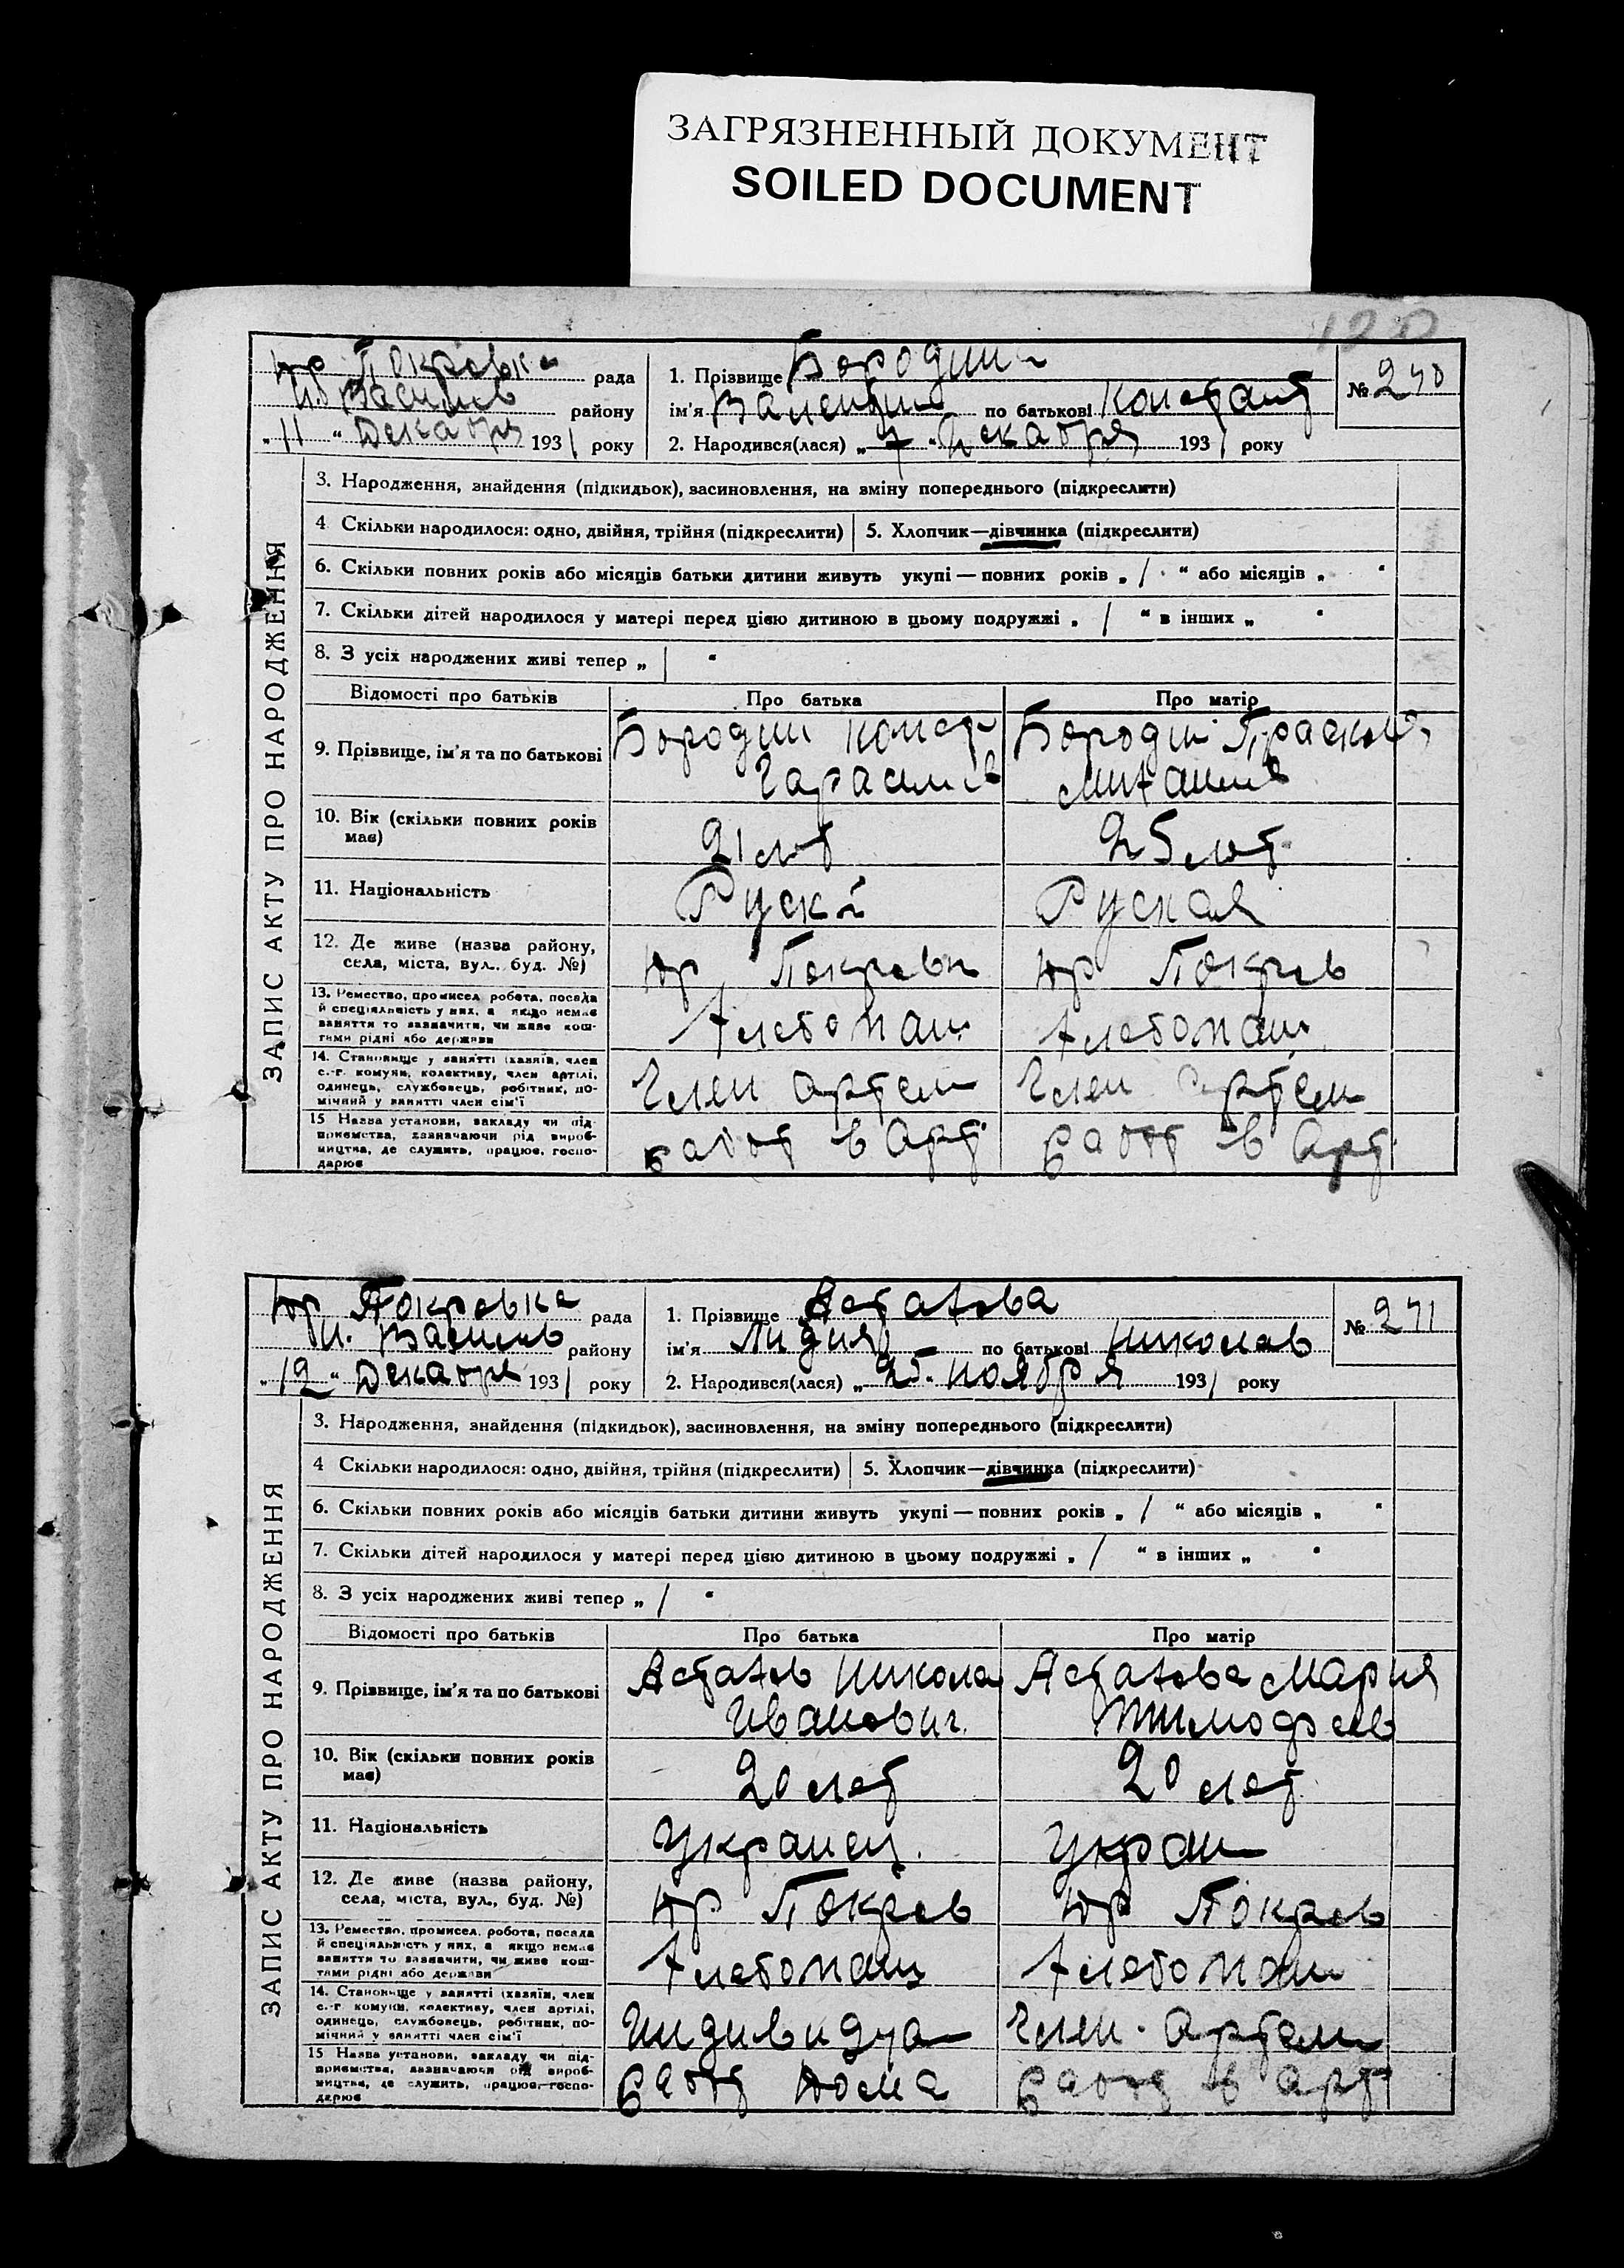 ЗАГРЯЗНЕННЫЙ ДОКУМЕНТ
SOILED DOCUMENT
120
Юр Покровка рада
Н. Василев району
„11“ Декабря 1931 року
1. Прізвище Бородина
ім'я Валентин по батькові Констант
2. Народився(лася) „7“ Декабря 1931 року
№ 240
ЗАПИС АКТУ ПРО НАРОДЖЕННЯ
3. Народження, знайдення (підкидьок), засиновлення, на зміну попереднього (підкреслити)
4 Скільки народилося: одно, двійня, трійня (підкреслити) 5. Хлопчик—дівчинка (підкреслити)
6. Скільки повних років або місяців батьки дитини живуть укупі — повних років „ / “ або місяців „ “
7. Скільки дітей народилося у матері перед цією дитиною в цьому подружжі „ / “ в інших „ “
8. З усіх народжених живі тепер „ | “
Відомості про батьків Про батька Про матір
9. Прізвище, ім'я та по батькові Бородин Конст Гарасимов Бородин Прасков Михаил
10. Вік (скільки повних років має) 21 лет 25 лет
11. Національність Руский Руская
12. Де живе (назва району, села, міста, вул., буд. №) Юр Покровк Юр Покров
13. Ремество, промисел, робота, посада й спеціяльність у них, а якщо немає заняття то зазначити, чи живе коштами рідні або держави Хлебопаш Хлебопаш
14. Становище у занятті (хазяїн, член с.-г. комуни, колективу, член артілі, одинець, службовець, робітник, помічний у занятті член сім'ї Член артели Член артели
15 Назва установи, закладу чи підприємства, зазначаючи рід виробництва, де служить, працює, господарює работ в Арт. работ в Арт.
Юр Покровка рада
Н. Василев району
„12“ Декабря 1931 року
1. Прізвище Астахова
ім'я Лидия по батькові Николав
2. Народився(лася) „25. ноября 1931 року
№ 241
ЗАПИС АКТУ ПРО НАРОДЖЕННЯ
3. Народження, знайдення (підкидьок), засиновлення, на зміну попереднього (підкреслити)
4 Скільки народилося: одно, двійня, трійня (підкреслити) 5. Хлопчик—дівчинка (підкреслити)
6. Скільки повних років або місяців батьки дитини живуть укупі — повних років „ / “ або місяців „ “
7. Скільки дітей народилося у матері перед цією дитиною в цьому подружжі „ / “ в інших „ “
8. З усіх народжених живі тепер „ / “
Відомості про батьків Про батька Про матір
9. Прізвище, ім'я та по батькові Астахов Никола Иванович. Астахова Мария Тимофеев
10. Вік (скільки повних років має) 20 лет 20 лет
11. Національність Украинец. Украин
12. Де живе (назва району, села, міста, вул., буд. №) Юр Покров Юр Покров
13. Ремество, промисел, робота, посада й спеціяльність у них, а якщо немає заняття то зазначити, чи живе коштами рідні або держави Хлебопаш Хлебопаш
14. Становище у занятті (хазяїн, член с.-г. комуни, колективу, член артілі, одинець, службовець, робітник, помічний у занятті член сім'ї Индивидуа Член. Артели
15 Назва установи, закладу чи підприємства, зазначаючи рід виробництва, де служить, працює, господарює работ дома работ в арт